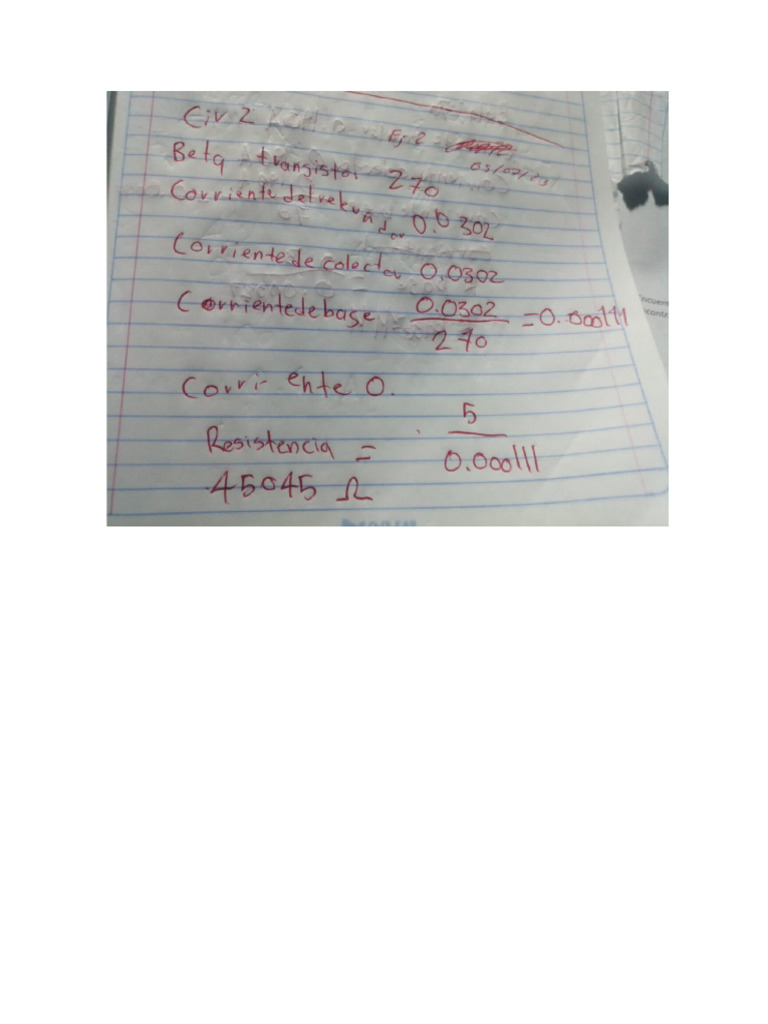 Cir 2
Ej 2
03/02/23
Beta transistor 270
Corriente del relevador 0.0302
Corriente de colector 0.0302
Corriente de base 0.0302 / 270 = 0.000111
Corri- ente 0.
Resistencia = 5 / 0.000111
45045 Ω